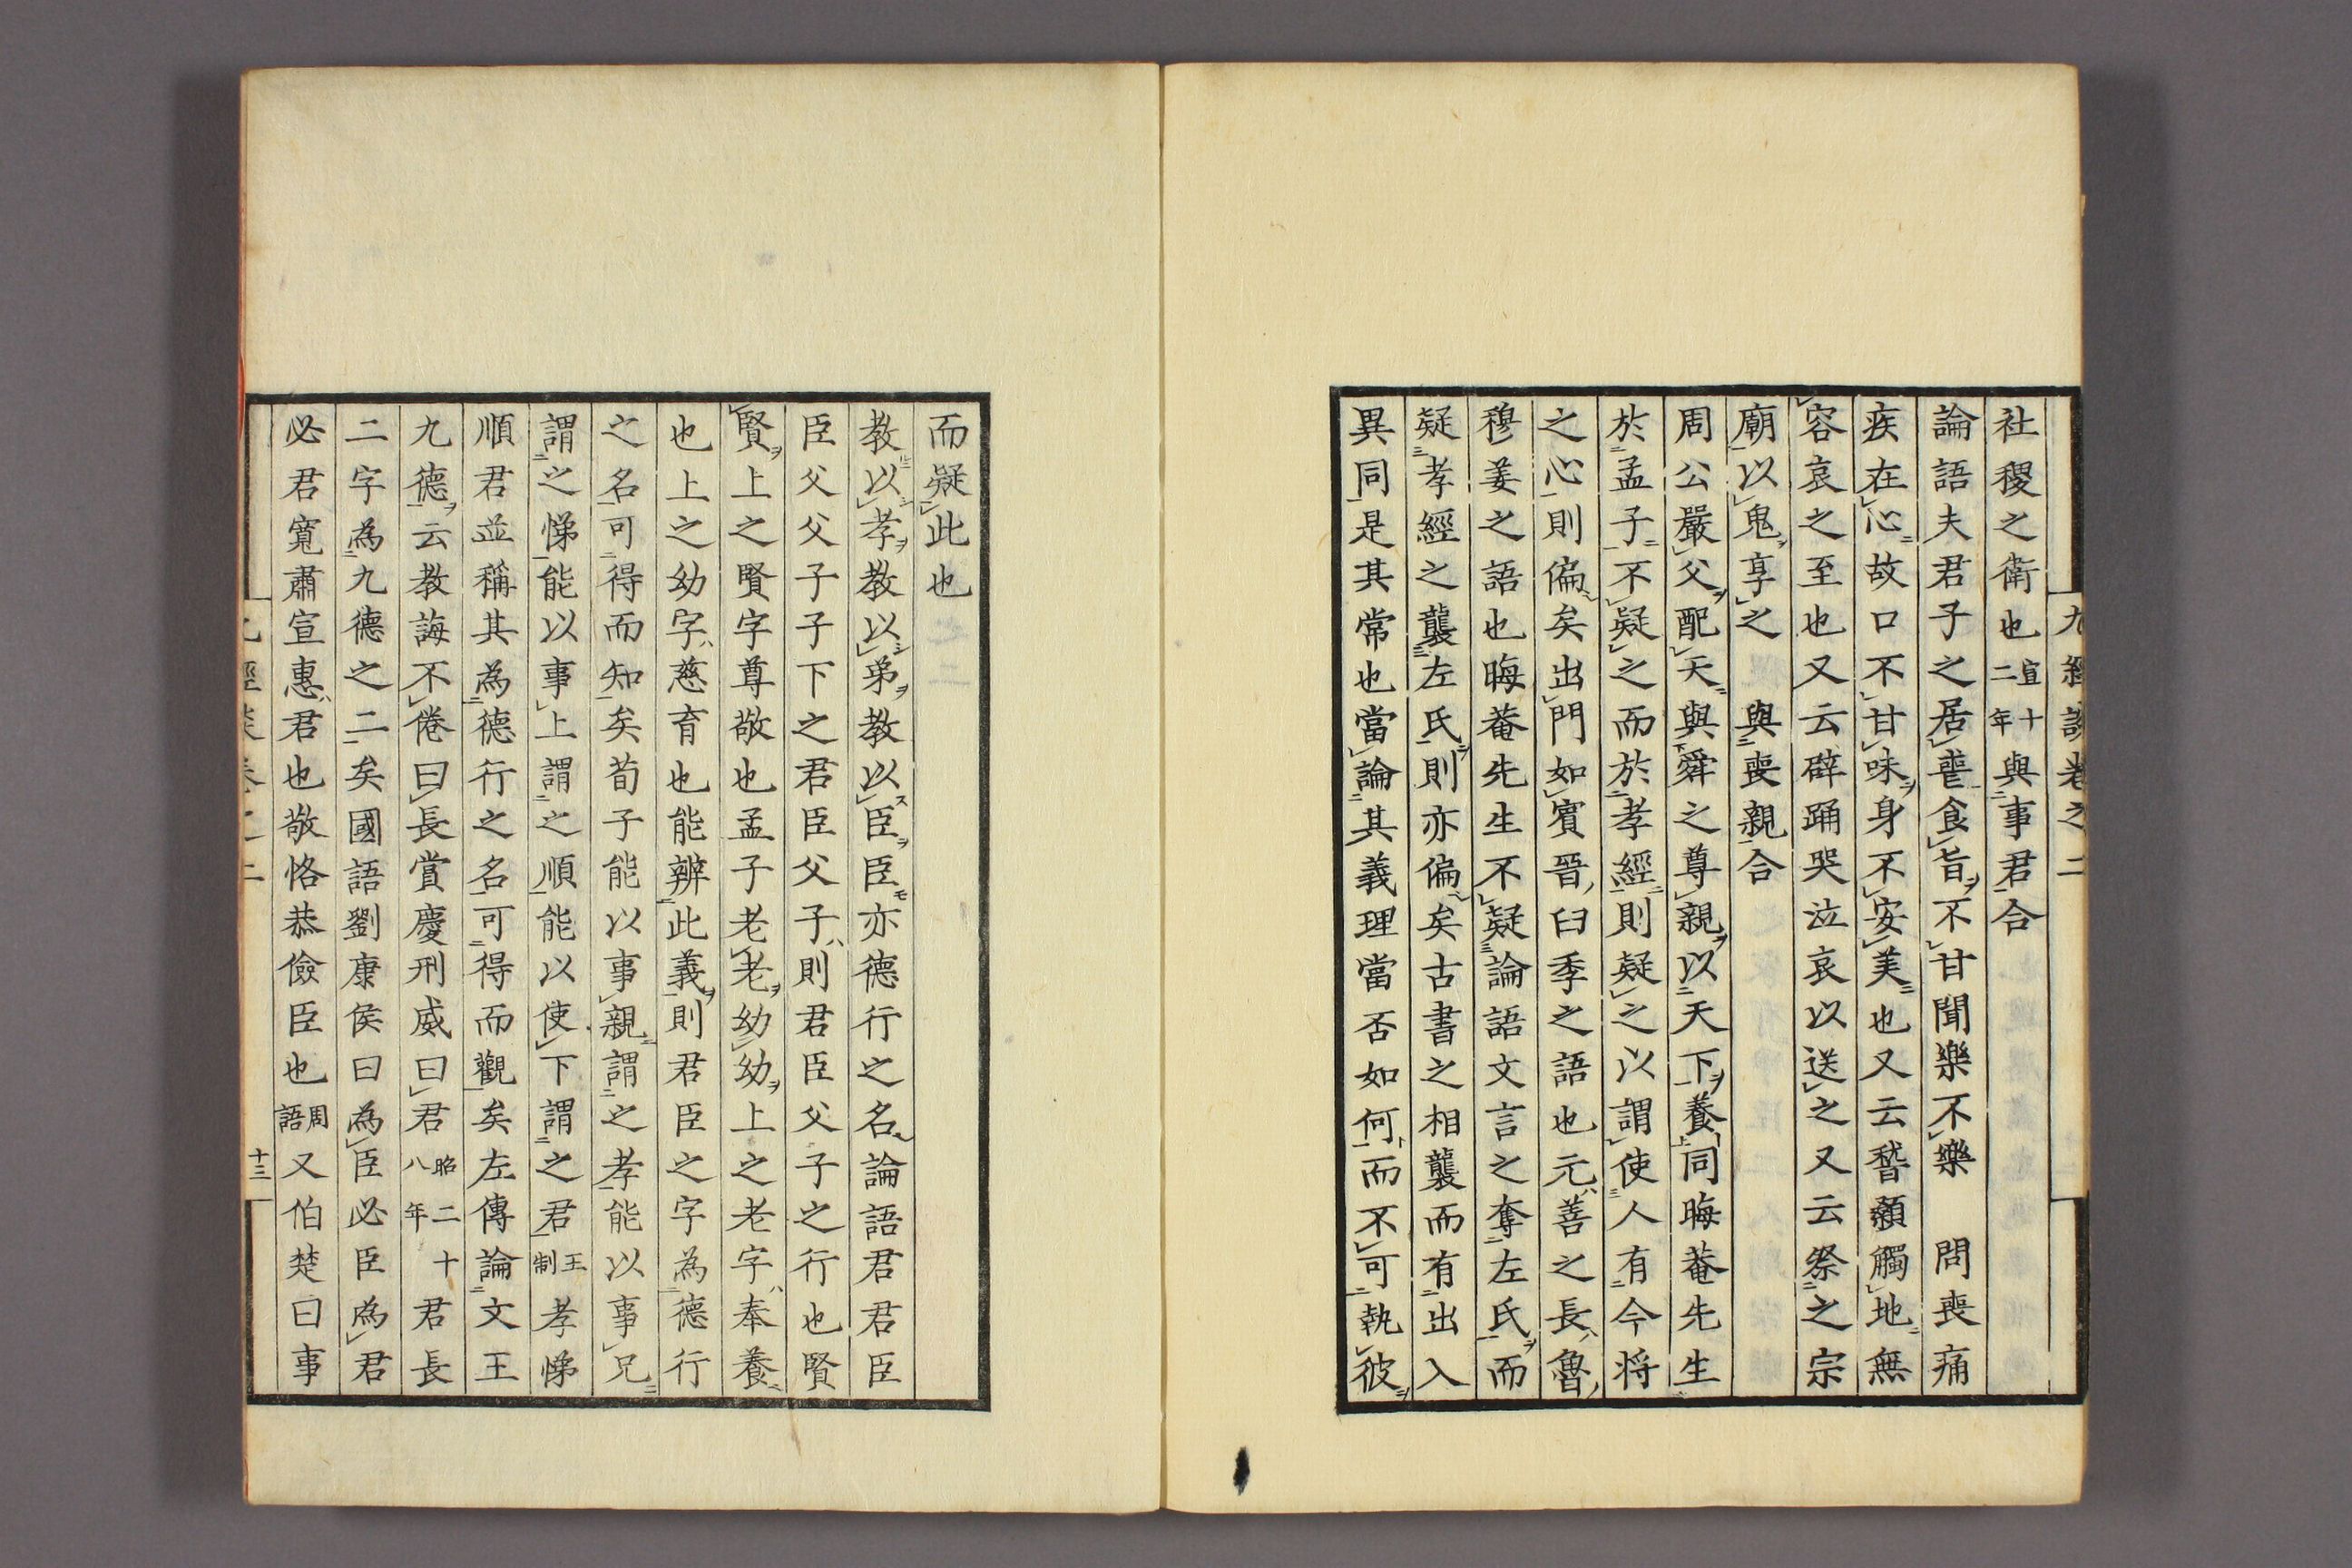 九經談卷之二
社稷之衛也宣十二年與事君合
論語夫君子之居喪食旨不甘聞樂不樂　問喪痛
疾在心故口不甘味身不安美也又云稽顙觸地無
容哀之至也又云辟踊哭泣哀以送之又云祭之宗
廟以鬼享之　與喪親合
周公嚴父配天與舜之尊親以天下養同晦菴先生
於孟子不疑之而於孝經則疑之以謂使人有今将
之心則偏矣出門如賓晉臼季之語也元善之長魯
穆姜之語也晦菴先生不疑論語文言之奪左氏而
疑孝經之襲左氏則亦偏矣古書之相襲而有出入
異同是其常也當論其義理當否如何而不可執彼
而疑此也
教以孝教以弟教以臣臣亦德行之名論語君君臣
臣父父子子下之君臣父子則君臣父子之行也賢
賢上之賢字尊敬也孟子老老幼幼上之老字奉養
也上之幼字慈育也能辨此義則君臣之字為德行
之名可得而知矣荀子能以事親謂之孝能以事兄
謂之悌能以事上謂之順能以使下謂之君王制孝悌
順君並稱其為德行之名可得而觀矣左傳論文王
九德云教誨不倦曰長賞慶刑威曰君昭二十八年君長
二字為九德之二矣國語劉康侯曰為臣必臣為君
必君寛肅宣惠君也敬恪恭儉臣也周語又伯楚曰事
十三